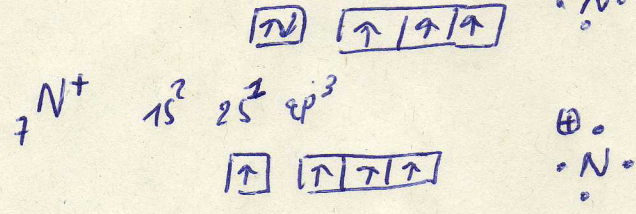 ↑↓ ↑ ↑ ↑ · N ·
₇N⁺ 1s² 2s¹ 2p³
⊕
↑ ↑ ↑ ↑ · N ·